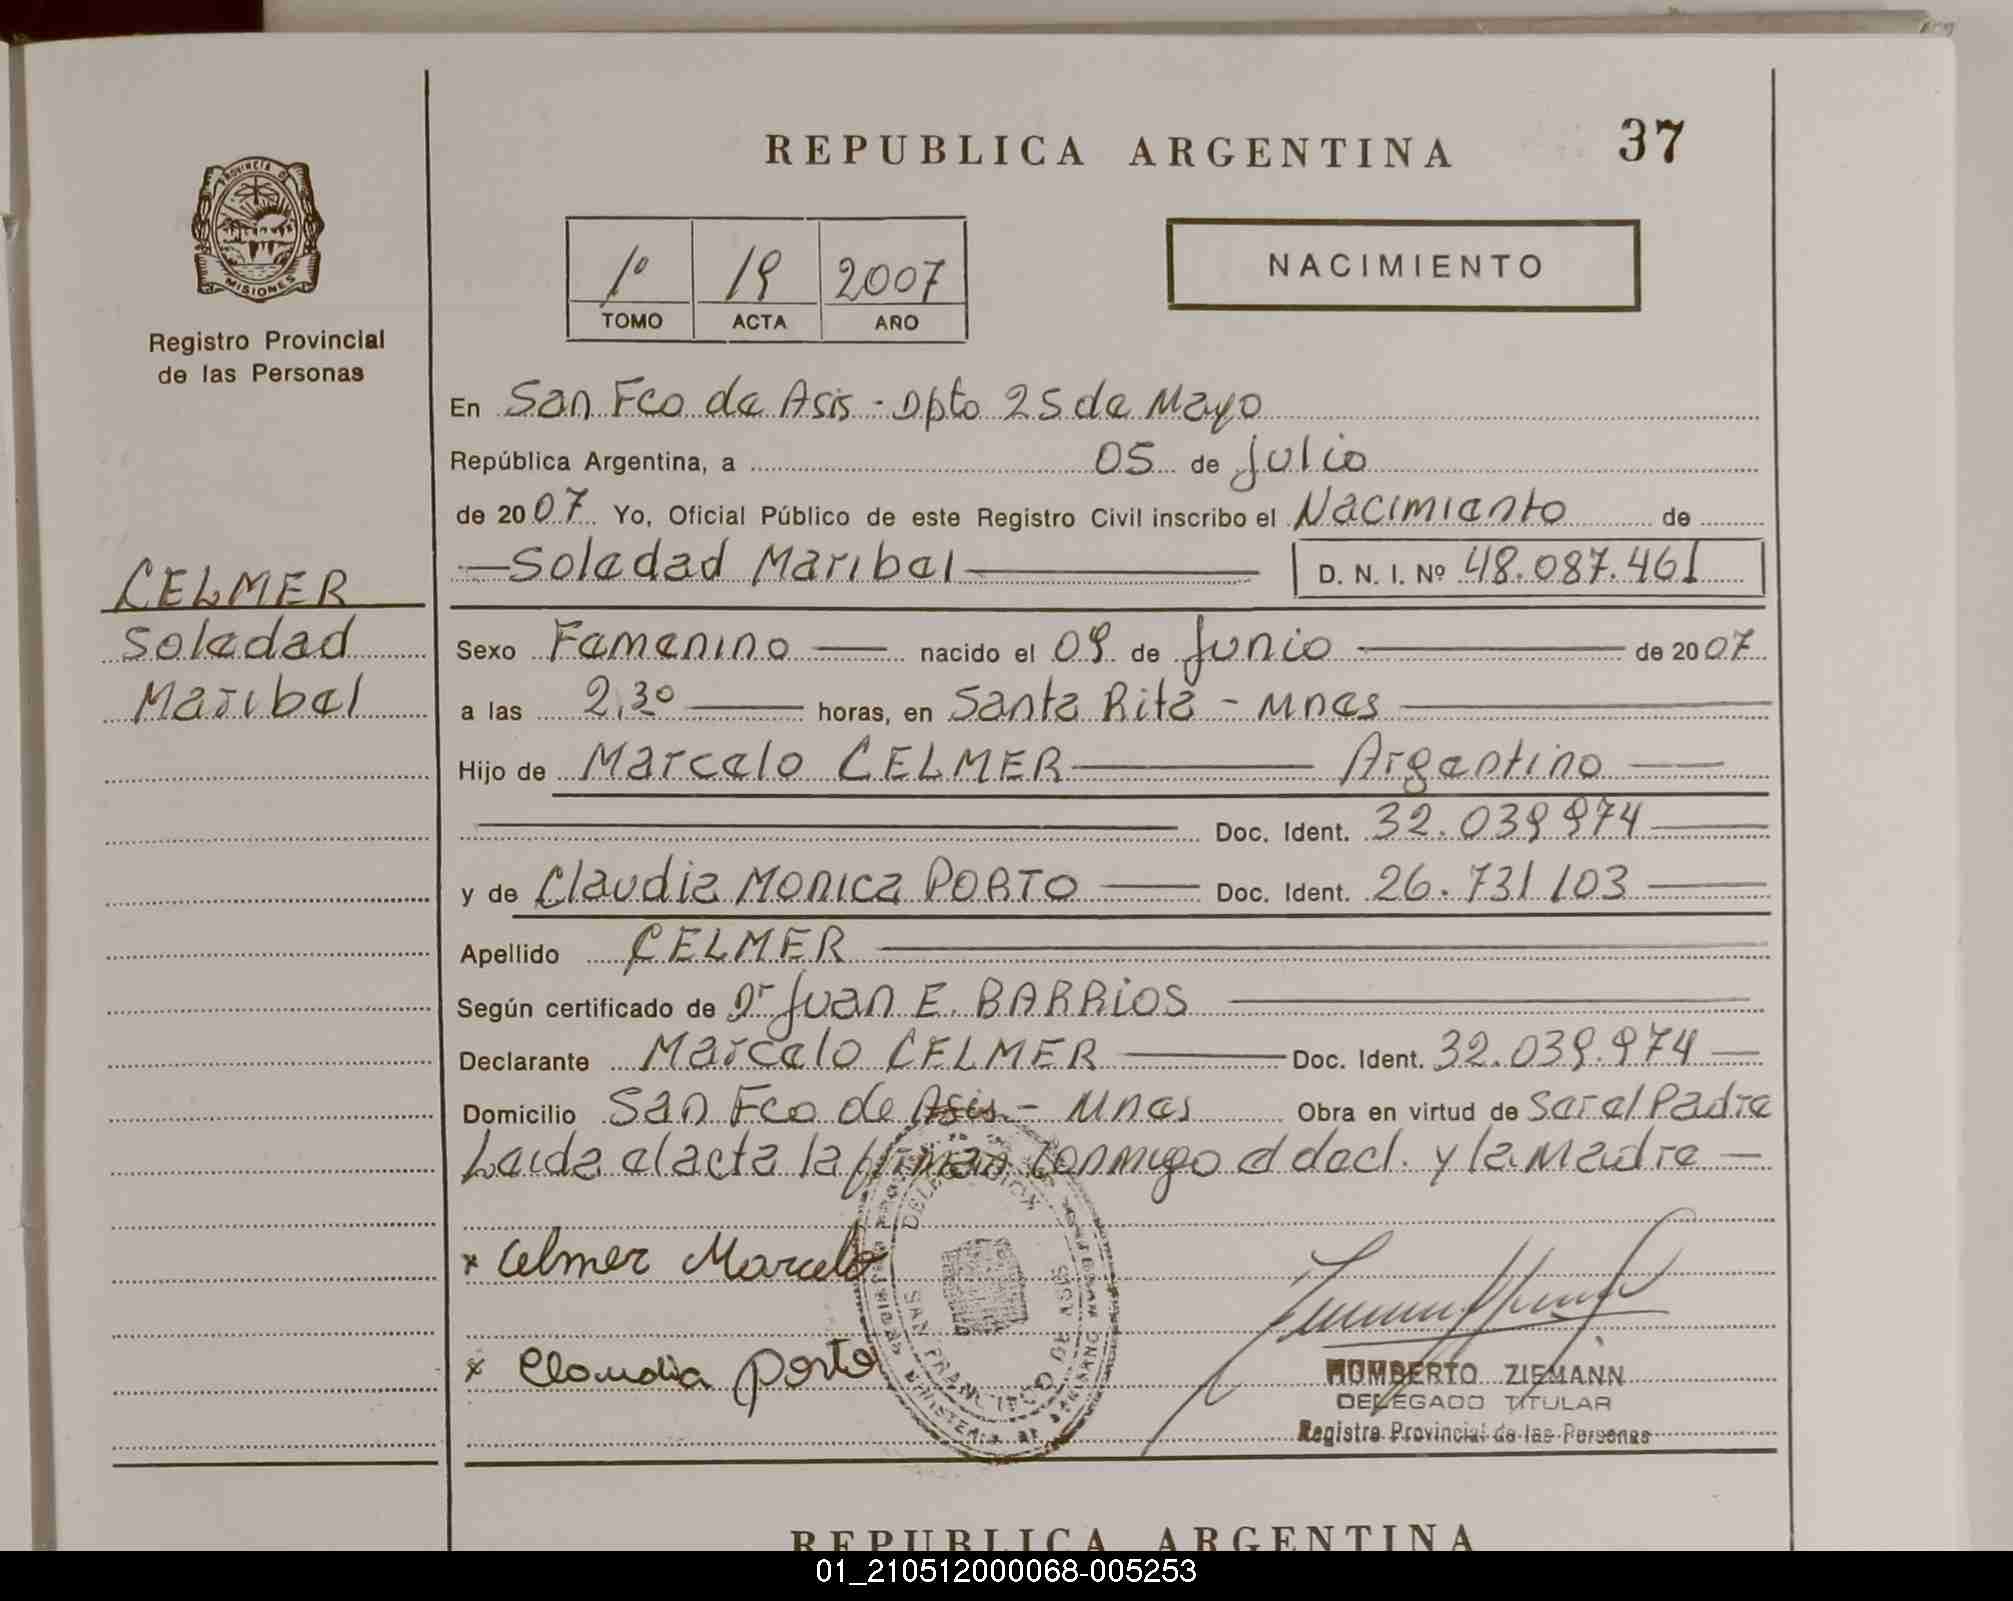 37
REPUBLICA ARGENTINA
PROVINCIA DE
MISIONES
Registro Provincial
de las Personas
1º 19 2007
TOMO ACTA AÑO
NACIMIENTO
En San Fco de Asis - Dpto 25 de Mayo
República Argentina, a 05 de Julio
de 2007 Yo, Oficial Público de este Registro Civil inscribo el Nacimiento de
Soledad Maribel D. N. I. Nº 48.087.461
CELMER
Soledad
Maribel
Sexo Femenino nacido el 09 de Junio de 2007
a las 2,30 horas, en Santa Rita - Mnes
Hijo de Marcelo CELMER Argentino
Doc. Ident. 32.039.974
y de Claudia Monica PORTO Doc. Ident. 26.731.103
Apellido CELMER
Según certificado de Dr Juan E. BARRIOS
Declarante Marcelo CELMER Doc. Ident. 32.039.974
Domicilio San Fco de Asis - Mnes Obra en virtud de Ser el Padre
Leida el acta la firman conmigo el decl. y la Madre
x Celmer Marcelo
x Claudia Porto
SAN FRANCISCO DE ASIS
HUMBERTO ZIEMANN
DELEGADO TITULAR
Registro Provincial de las Personas
REPUBLICA ARGENTINA
01_210512000068-005253